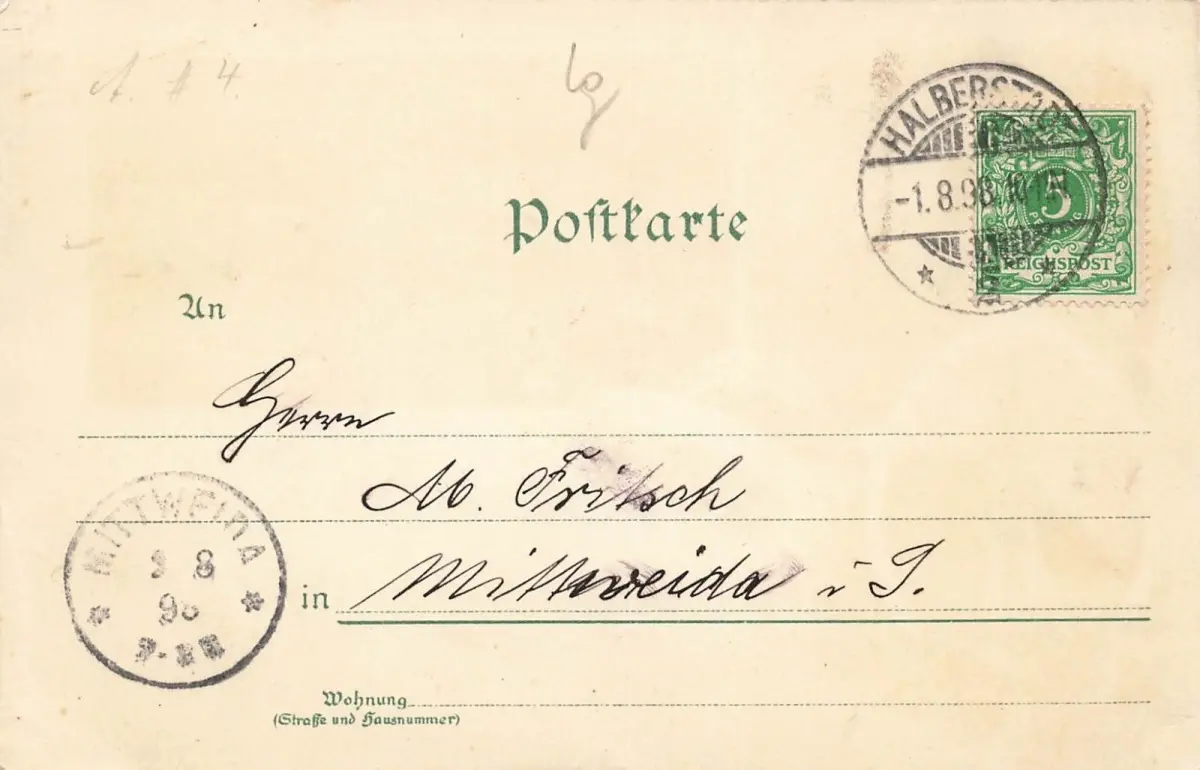 A. # 4.
Postkarte
HALBERSTADT
-1.8.98.
5
PFENNIG
REICHSPOST
An
Herrn
M. Fritsch
in Mittweida i S.
MITTWEIDA
8
98
Wohnung
(Straße und Hausnummer)